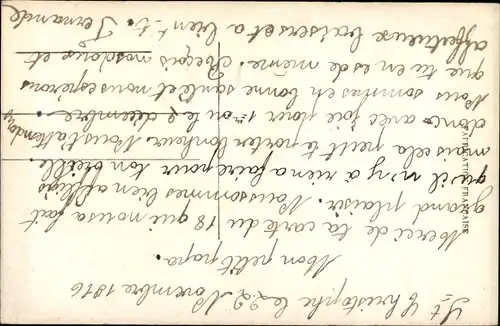 St Christophe le 22 Novembre 1916
Mon petit papa.
Merci de ta carte du 18 qui nous a fait
grand plaisir. Nous sommes bien affligés
qu'il n'y a rien a faire pour ton oreille.
mais cela peut te porter bonheur. Nous t'attendons
donc avec joie pour 1er ou le 2 décembre.
Nous sommes en bonne santé et nous espérons
que tu en es de meme. Reçois nos doux et
affectueux baisers et a bientôt. Fernande
FABRICATION FRANÇAISE